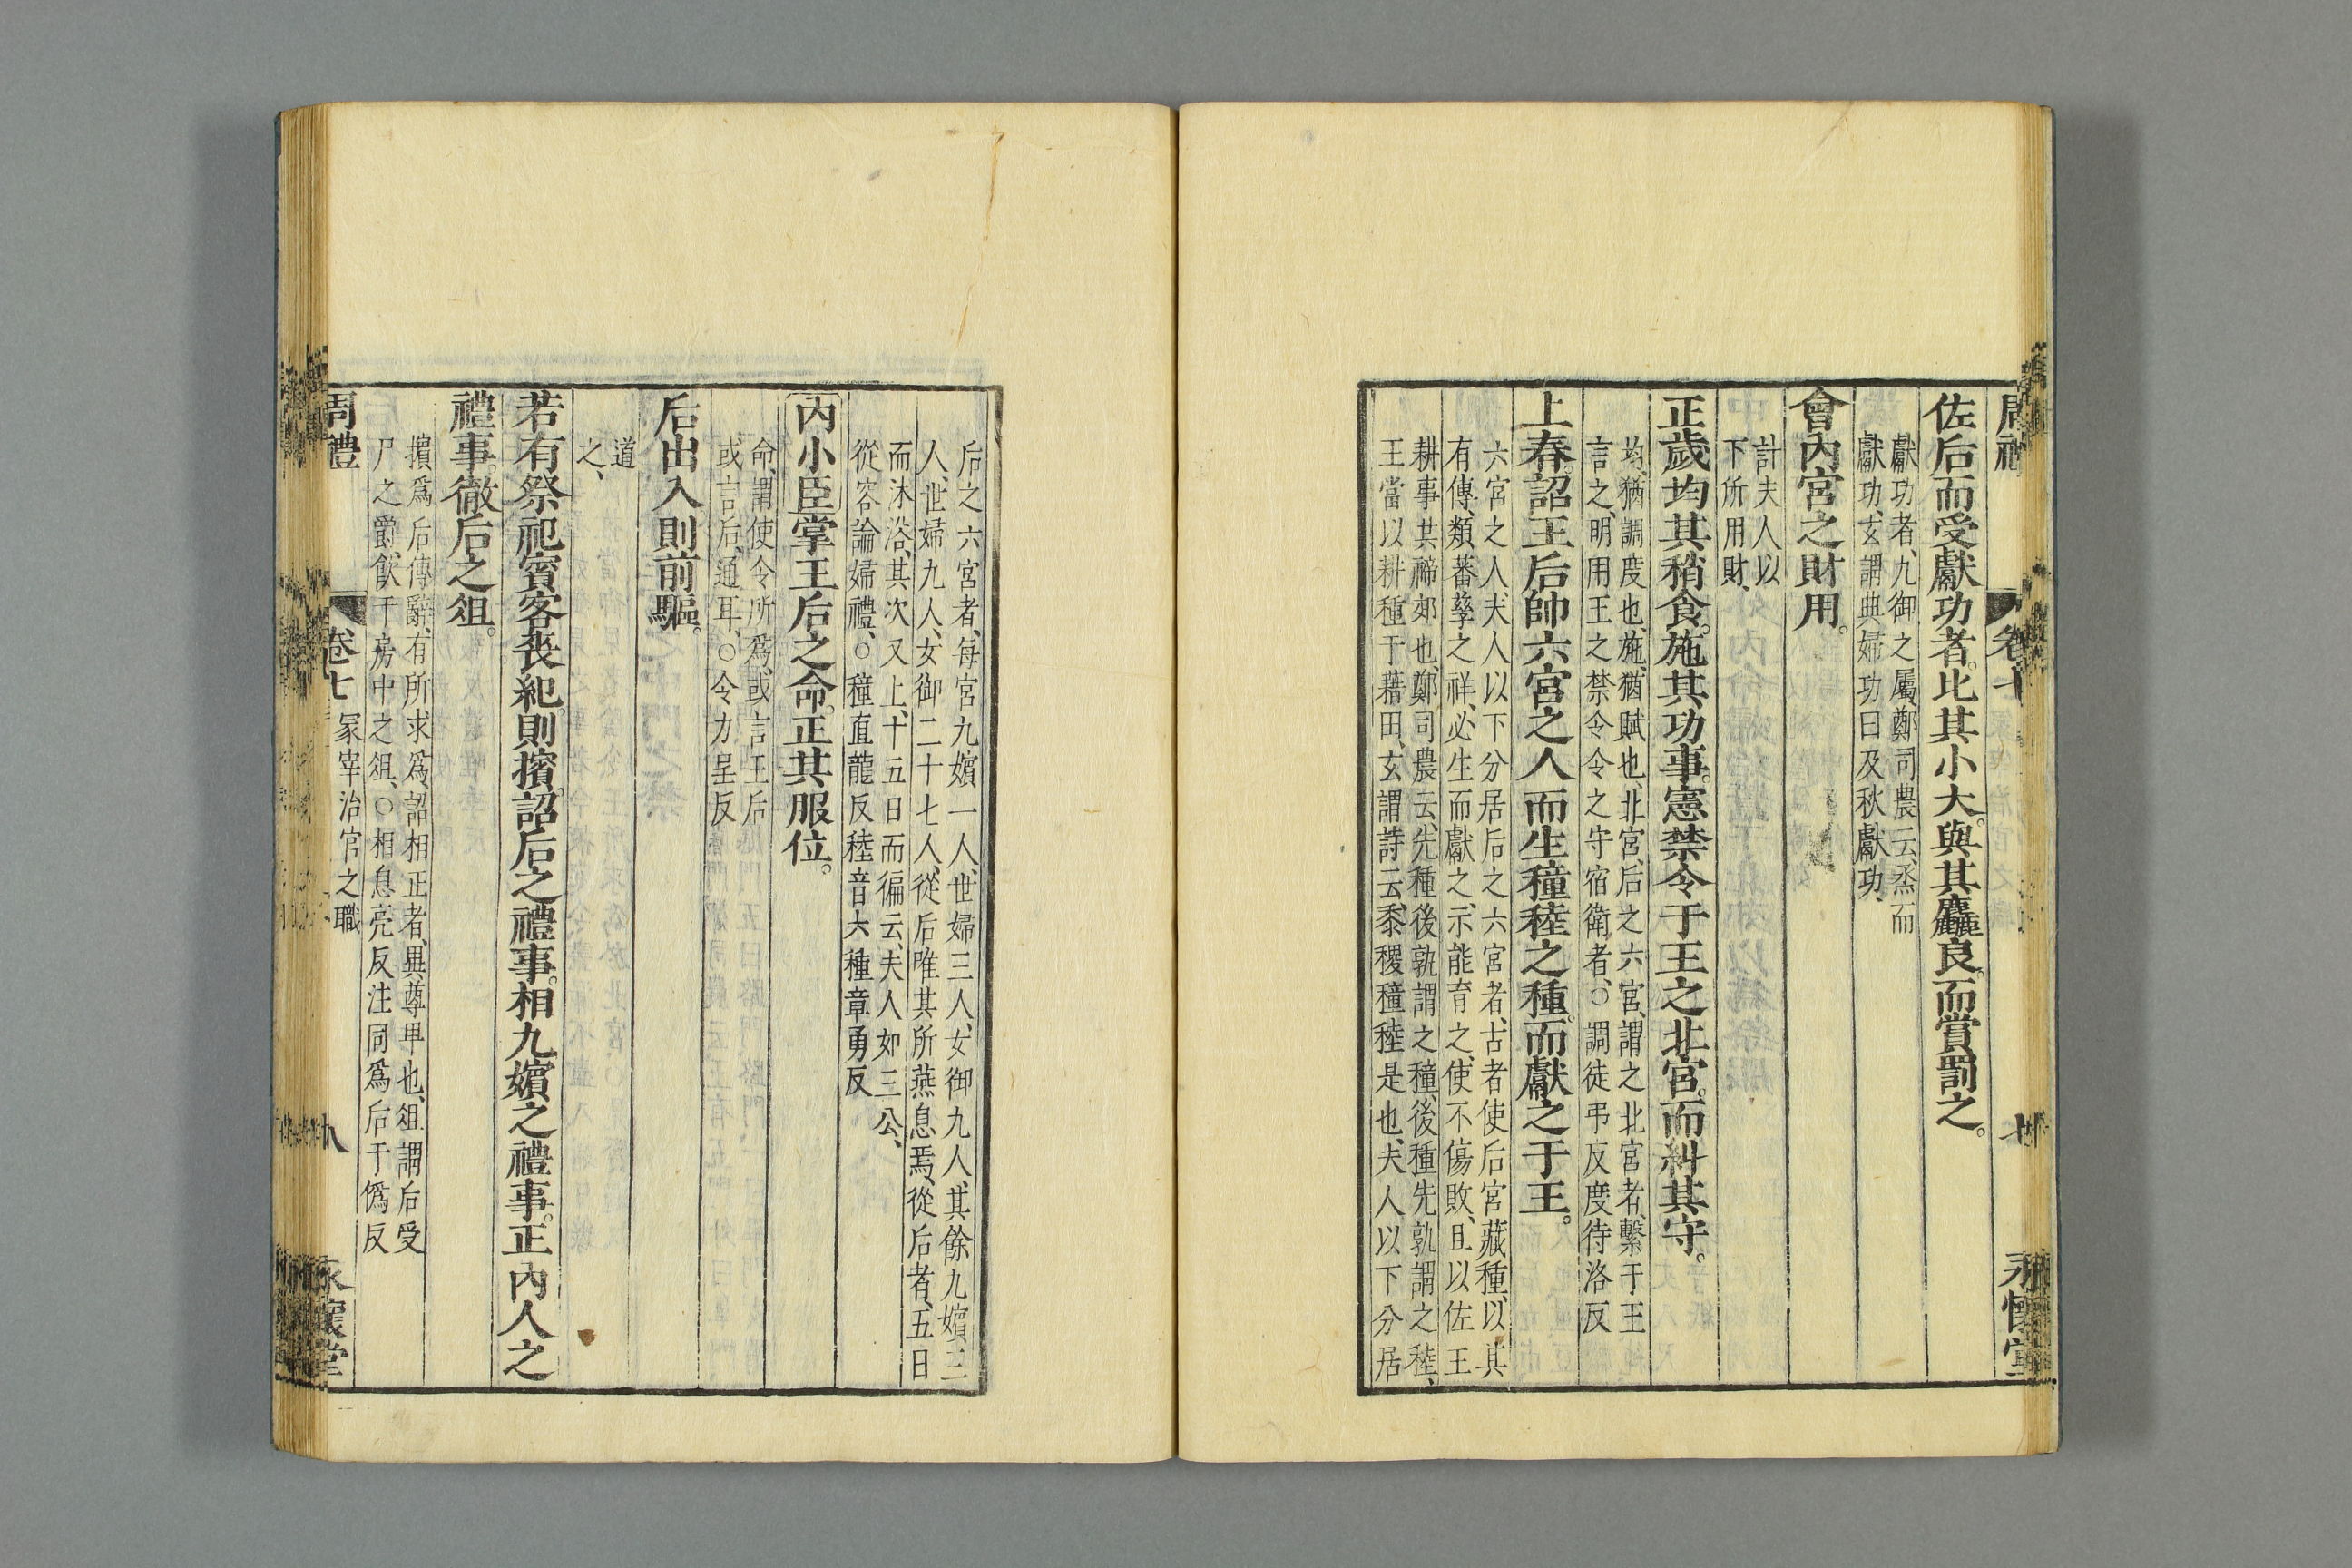 周禮
卷七
永懷堂
佐后而受獻功者。比其小大。與其麤良。而賞罰之。
獻功者、九御之屬、鄭司農云、烝而
獻功、玄謂典婦功曰及秋獻功、
會內宮之財用。
計夫人以
下所用財、
正歲均其稍食。施其功事。憲禁令于王之北宮。而糾其守。
均、猶調度也、施、猶賦也、北宮、后之六宮、謂之北宮者、繫于王
言之、明用王之禁令令之守宿衛者、○調徒弔反度待洛反
上春。詔王后帥六宮之人而生穜稑之種。而獻之于王。
六宮之人、夫人以下分居后之六宮者、古者使后宮藏種、以其
有傳、類蕃孳之祥、必生而獻之、示能育之、使不傷敗、且以佐王
耕事共禘郊也、鄭司農云、先種後孰謂之穜、後種先孰謂之稑、
王當以耕種于藉田、玄謂詩云、黍稷穜稑是也、夫人以下分居
后之六宮者、每宮九嬪一人、世婦三人、女御九人、其餘九嬪三
人、世婦九人、女御二十七人、從后唯其所燕息焉、從后者、五日
而沐浴、其次又上、十五日而徧云、夫人如三公、
從容論婦禮、○穜直龍反稑音六種章勇反
內小臣掌王后之命。正其服位。
命、謂使令所爲、或言王后
或言后、通耳、○令力呈反
后出入則前驅。
道
之、
若有祭祀賓客喪紀。則擯。詔后之禮事。相九嬪之禮事。正內人之
禮事。徹后之俎。
擯爲后傳辭、有所求爲、詔相正者、異尊卑也、俎謂后受
尸之爵飲于房中之俎、○相息亮反注同爲后于僞反
周禮
卷七
冢宰治官之職
八
永懷堂